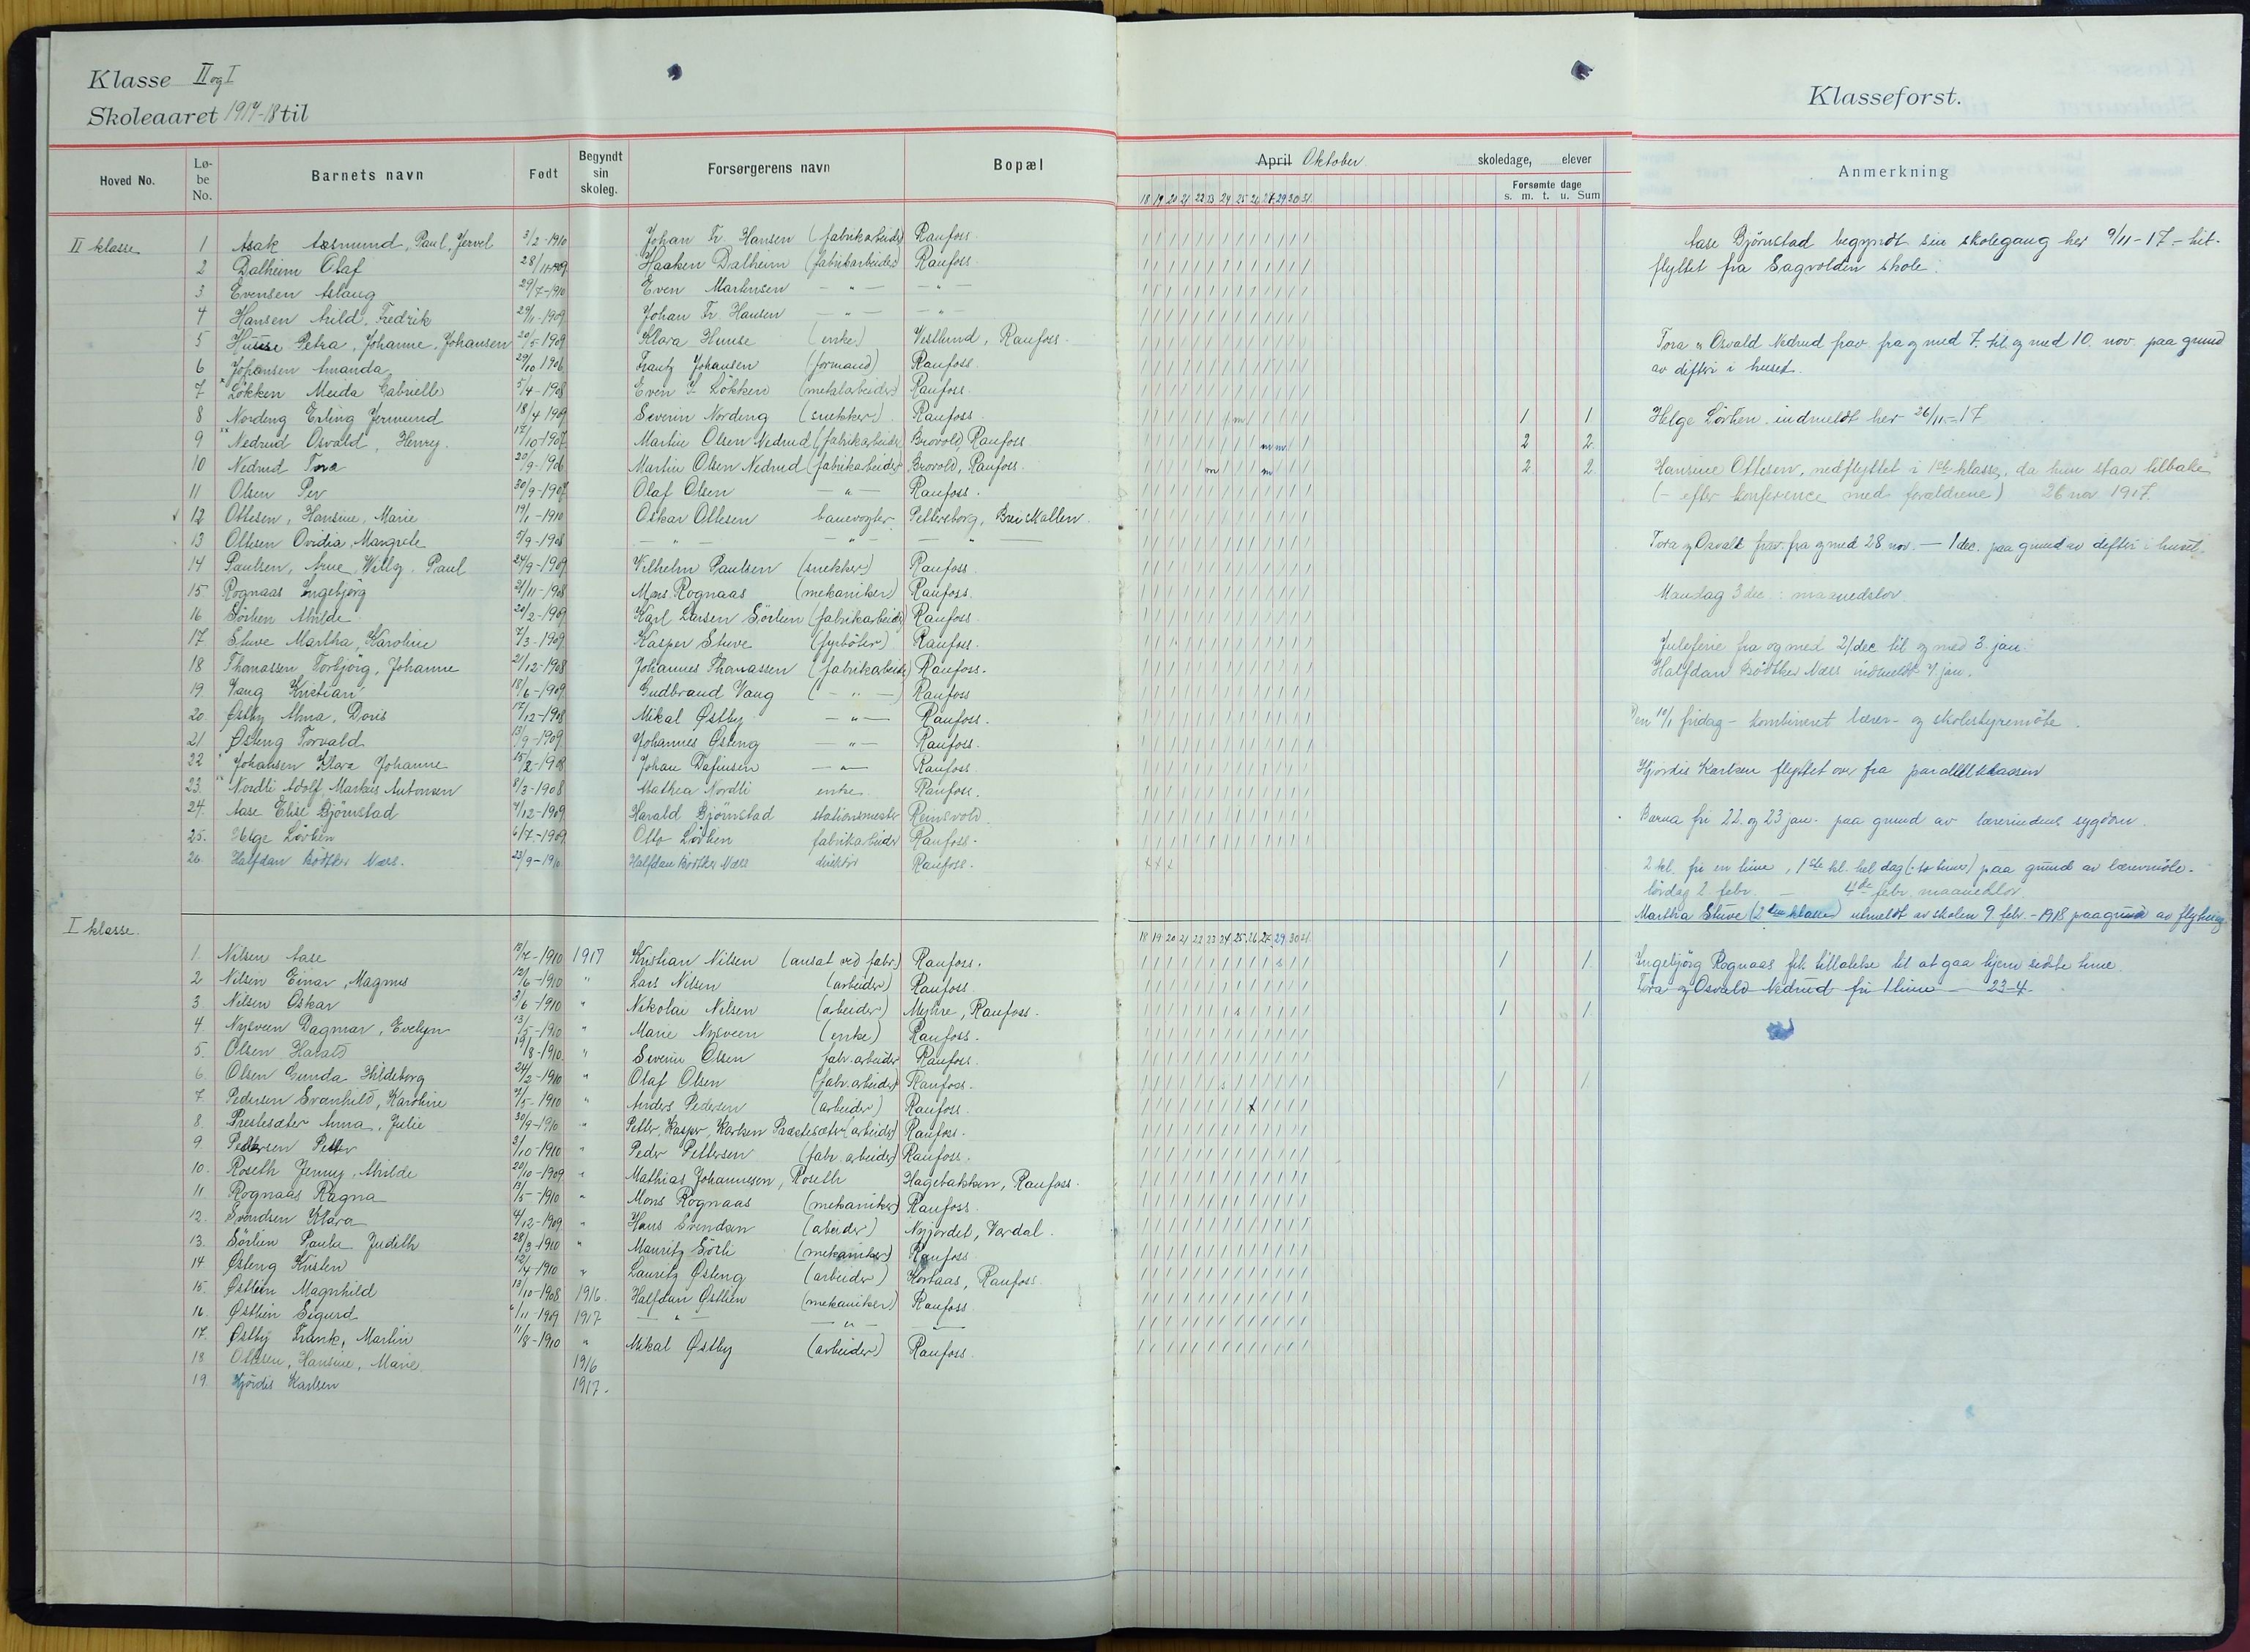 Klasse II og I
Skoleaaret 1917-18 til
Klasseforst.
Hoved No. Løbe No. Barnets navn Født Begyndt sin skoleg. Forsørgerens navn Bopæl April Oktober. skoledage, elever Anmerkning
18 19 20 21 22 23 24 25 26 27 29 30 31 Forsømte dage s. m. t. u. Sum
II klasse
1 Asak Aasmund, Paul, Jervel 3/2-1910 Johan Fr. Hansen (fabrikarbeider) Raufoss.
2 Dalheim Olaf 28/11-1909 Haaken Dalheim (fabrikarbeider) Raufoss.
3 Evensen Aslaug 29/7-1910 Even Martinsen — " — — " —
4 Hansen Arild, Fredrik 29/1-1909 Johan Fr. Hansen — " — — " —
5 Huuse Petra, Johanne, Johansen 20/5-1909 Klara Huuse (enke) Vestlund, Raufoss.
6 Johansen Amanda 29/10 1906 Frantz Johansen (formand) Raufoss.
7 Løkken Meida Gabrielle 5/4-1908 Even Løkken (metalarbeider) Raufoss.
8 Nordeng Erling Jermund 18/4 1909 Severin Nordeng (snekker) Raufoss. m 1 1
9 Nedrud Osvald, Henry. 17/10-1907 Martin Olsen Nedrud (fabrikarbeider) Brovold, Raufoss m m 2 2
10 Nedrud Tora 20/9-1906 Martin Olsen Nedrud (fabrikarbeider) Brovold, Raufoss. m m 2 2
11 Olsen Per 30/9-1907 Olaf Olsen — " — Raufoss.
12 Ottesen, Hansine, Marie 19/1-1910 Oskar Ottesen banevogter Petlersborg, Breiskallen.
13 Ottesen Ovidia, Margrete 5/9-1908 — " — — " — — " —
14 Paulsen, Arne, Willy, Paul 24/9-1909 Vilhelm Paulsen (snekker) Raufoss.
15 Rognaas Ingebjørg 21/11-1908 Mons Rognaas (mekaniker) Raufoss.
16 Sörlien Alvilde 20/2-1909 Karl Larsen Sörlien (fabrikarbeider) Raufoss.
17 Stuve Martha, Karoline 7/3-1909 Kasper Stuve (fyrböter) Raufoss.
18 Thomassen Torbjörg, Johanne 21/12-1908 Johannes Thomassen (fabrikarbeider) Raufoss.
19 Vang Kristian 18/6-1909 Gudbrand Vang (— " —) Raufoss
20 Østby Alma, Doris 17/12-1908 Mikal Østby — " — Raufoss.
21 Østeng Torvald 13/9-1909 Johannes Østeng — " — Raufoss.
22 Johansen Klara Johanne 15/2-1908 Johan Dafinsen — " — Raufoss
23. Nordli Adolf, Markus Antonsen 8/3-1908 Mathea Nordli enke Raufoss.
24. Aase Elise Björnstad 4/12-1909 Harald Björnstad stationsmester Reinsvold
25. Helge Lövlien 6/7-1909 Otto Lövlien fabrikarbeider Raufoss.
26. Halfdan Bödtker Næss. 23/9-1910 Halfdan Bödtker Næss direktör Raufoss.
I klasse.
18 19 20 21 22 23 24 25 26 27 29 30 31
1. Nilsen Aase 13/7-1910 1917 Kristian Nilsen (ansat ved fabr.) Raufoss. s 1 1
2 Nilsen Einar, Magnus 12/6-1910 " Lars Nilsen (arbeider) Raufoss.
3 Nilsen Oskar 3/6-1910 " Nikolai Nilsen (arbeider) Myhre, Raufoss. s 1 1
4. Nysveen Dagmar, Evelyn 13/5-1910 " Marie Nysveen (enke) Raufoss.
5. Olsen Harald 19/8-1910 " Severin Olsen fabr. arbeider Raufoss.
6. Olsen Gunda Hildeborg 24/2-1910 " Olaf Olsen (fabr. arbeider) Raufoss. s 1 1
7. Pedersen Svanhild, Karoline 9/5-1910 " Anders Pedersen (arbeider) Raufoss.
8. Prestesæter Anna, Julie 30/9-1910 " Petter, Kasper, Karlsen Prestesæter (arbeider) Raufoss.
9. Pettersen Petter 3/10-1910 " Peder Pettersen (fabr. arbeider) Raufoss.
10. Roseth Jenny, Alvilde 20/10-1909 " Mathias Johannesen, Roseth Hagebakken, Raufoss.
11 Rognaas Ragna 13/5-1910 " Mons Rognaas (mekaniker) Raufoss.
12. Svendsen Klara 4/12-1909 " Hans Svendsen (arbeider) Nyjordet, Vardal.
13. Sörlien Paula Judith 28/3-1910 " Mauritz Sörli (mekaniker) Raufoss
14 Østeng Kristen 12/4-1910 " Lauritz Østeng (arbeider) Korbaas, Raufoss.
15. Østlien Magnhild 13/10-1908 1916. Halfdan Østlien (mekaniker) Raufoss
16. Østlien Sigurd 6/11-1909 1917 — " — — " — — " —
17. Østby Frank, Martin 11/8-1910 " Mikal Østby (arbeider) Raufoss.
18. Ottesen, Hansine, Marie. 1916
19. Hjördis Karlsen 1917.
Aase Björnstad begyndt sin skolegang her 9/11-17 - hitflyttet fra Sagvolden skole.
Tora " Osvald Nedrud frav. fra og med 7. til og med 10. nov. paa grund
av difteri i huset.
Helge Lövlien indmeldt her 26/11-17
Hansine Ottesen, nedflyttet i 1ste klasse, da hun staar tilbake
(- efter konference med forældrene) 26 nov 1917.
Tora og Osvald frav. fra og med 28 nov. — 1 dec. paa grund av difteri i huset.
Mandag 3 dec : maanedslov.
Juleferie fra og med 21 dec til og med 3. jan.
Halfdan Bödtker Næss indmeldt 4 jan.
Den 10/1 fridag - kombineret lærer- og skolestyremöte.
Hjördis Karlsen flyttet over fra parallelklassen
Barna fri 22. og 23 jan. paa grund av lærerindens sygdom.
2 kl. fri en time, 1ste kl. hel dag (to timer) paa grund av lærermöte.
lördag 2. febr. — 4de febr. maanedslov
Martha Stuve (2den klasse) utmeldt av skolen 9. febr. - 1918 paa grund av flytning
Ingebjörg Rognaas fik tillatelse til at gaa hjem sidste time.
Tora og Osvald Nedrud fri 1 time — 23-4.